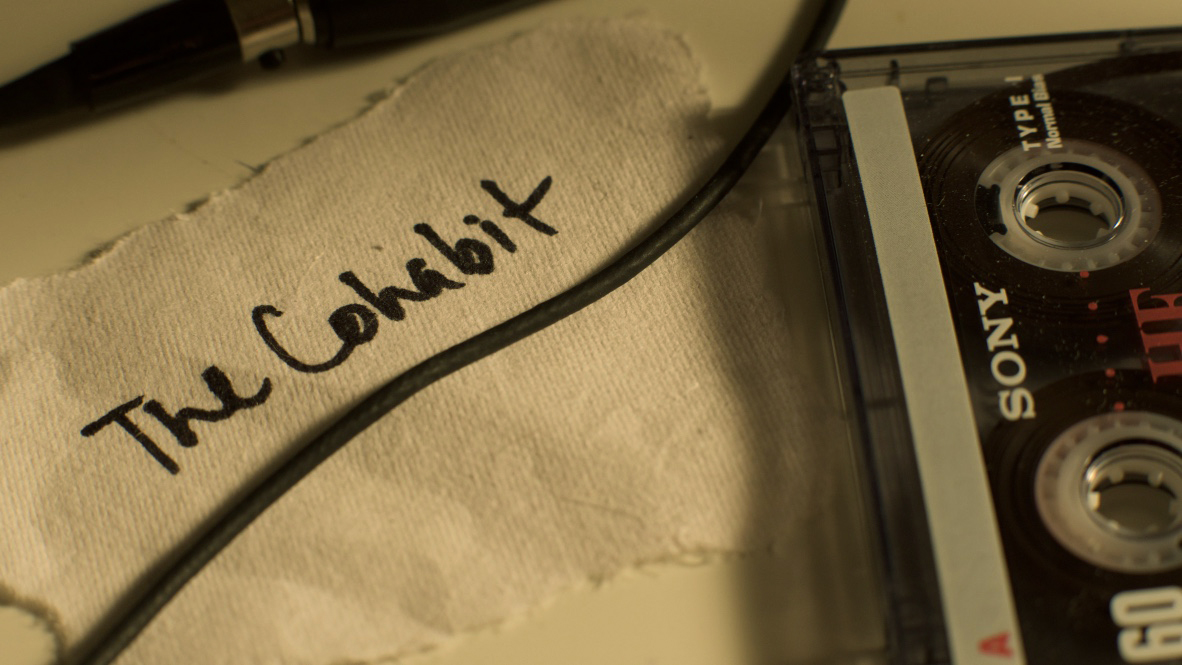 The Cohabit
TYPE I
Normal Bias
SONY
HF
60
A